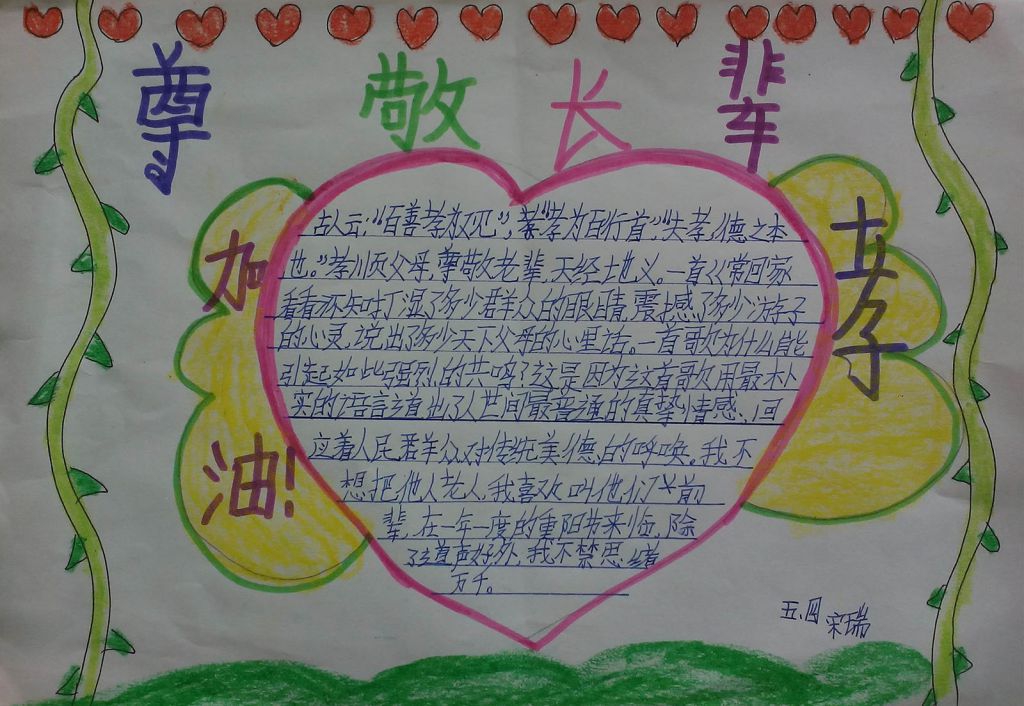 尊敬长辈
加油!
古人云:“百善孝为见”,“孝为百行首,“失孝,德之本
也。”孝川页父母,尊敬老辈,天经土也义。一首《常回家
看看不知打湿了多少群众的眼睛,震撼了多少游子
的心灵,说出了多少天下父母的心里话。一首歌为什么能
引起如此强烈的共鸣?这是因为这首歌用最朴
实的语言道出了人世间最普通的真挚情感、回
应着人民群众对传统美德的呼唤。我不
想把他人老人,我喜欢叫他们前
辈,在一年一度的重阳节来临,除
了道声好外,我不禁思绪
万千。
五、四 宋瑞